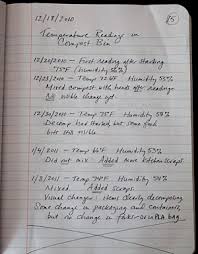 12/18/2010
85
Temperature Reading in
Compost Bin
12/20/2010 - First reading after starting
75°F (humidity 56%)
12/23/2010 - Temp 72.6°F Humidity 55%
Mixed compost with hands after readings
No visible change yet.
12/30/2010 - Temp 75°F Humidity 58%
Decomp. had started, but some food
bits still visible
1/4/2011 - Temp 66°F Humidity 53%
Did not mix. Added more kitchen scraps.
1/8/2011 - Temp 74°F Humidity 54%
Mixed. Added scraps.
Visual changes: Items clearly decomposing
Some change in packaging and containers,
but no change in forks or in PLA bag.